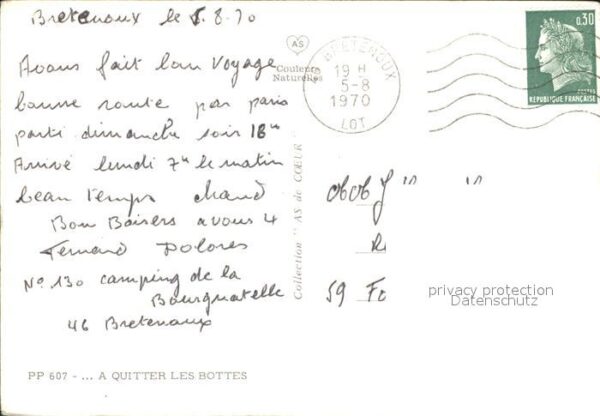 Bretenoux le 5.8.70
Avons fait bon voyage
bonne route par paris
parti dimanche soir 18h
Arrivé lundi 7h le matin
beau temps chaud
Bon Baisers a vous 4
Fernand Dolores
No 130 camping de la
Bourgnatelle
46 Bretenoux
PP 607 - ... A QUITTER LES BOTTES
AS
Couleurs
Naturelles
Collection "AS de CŒUR"
BRETENOUX
19 H
5-8
1970
LOT
0,30
POSTES
REPUBLIQUE FRANÇAISE
59
privacy protection
Datenschutz